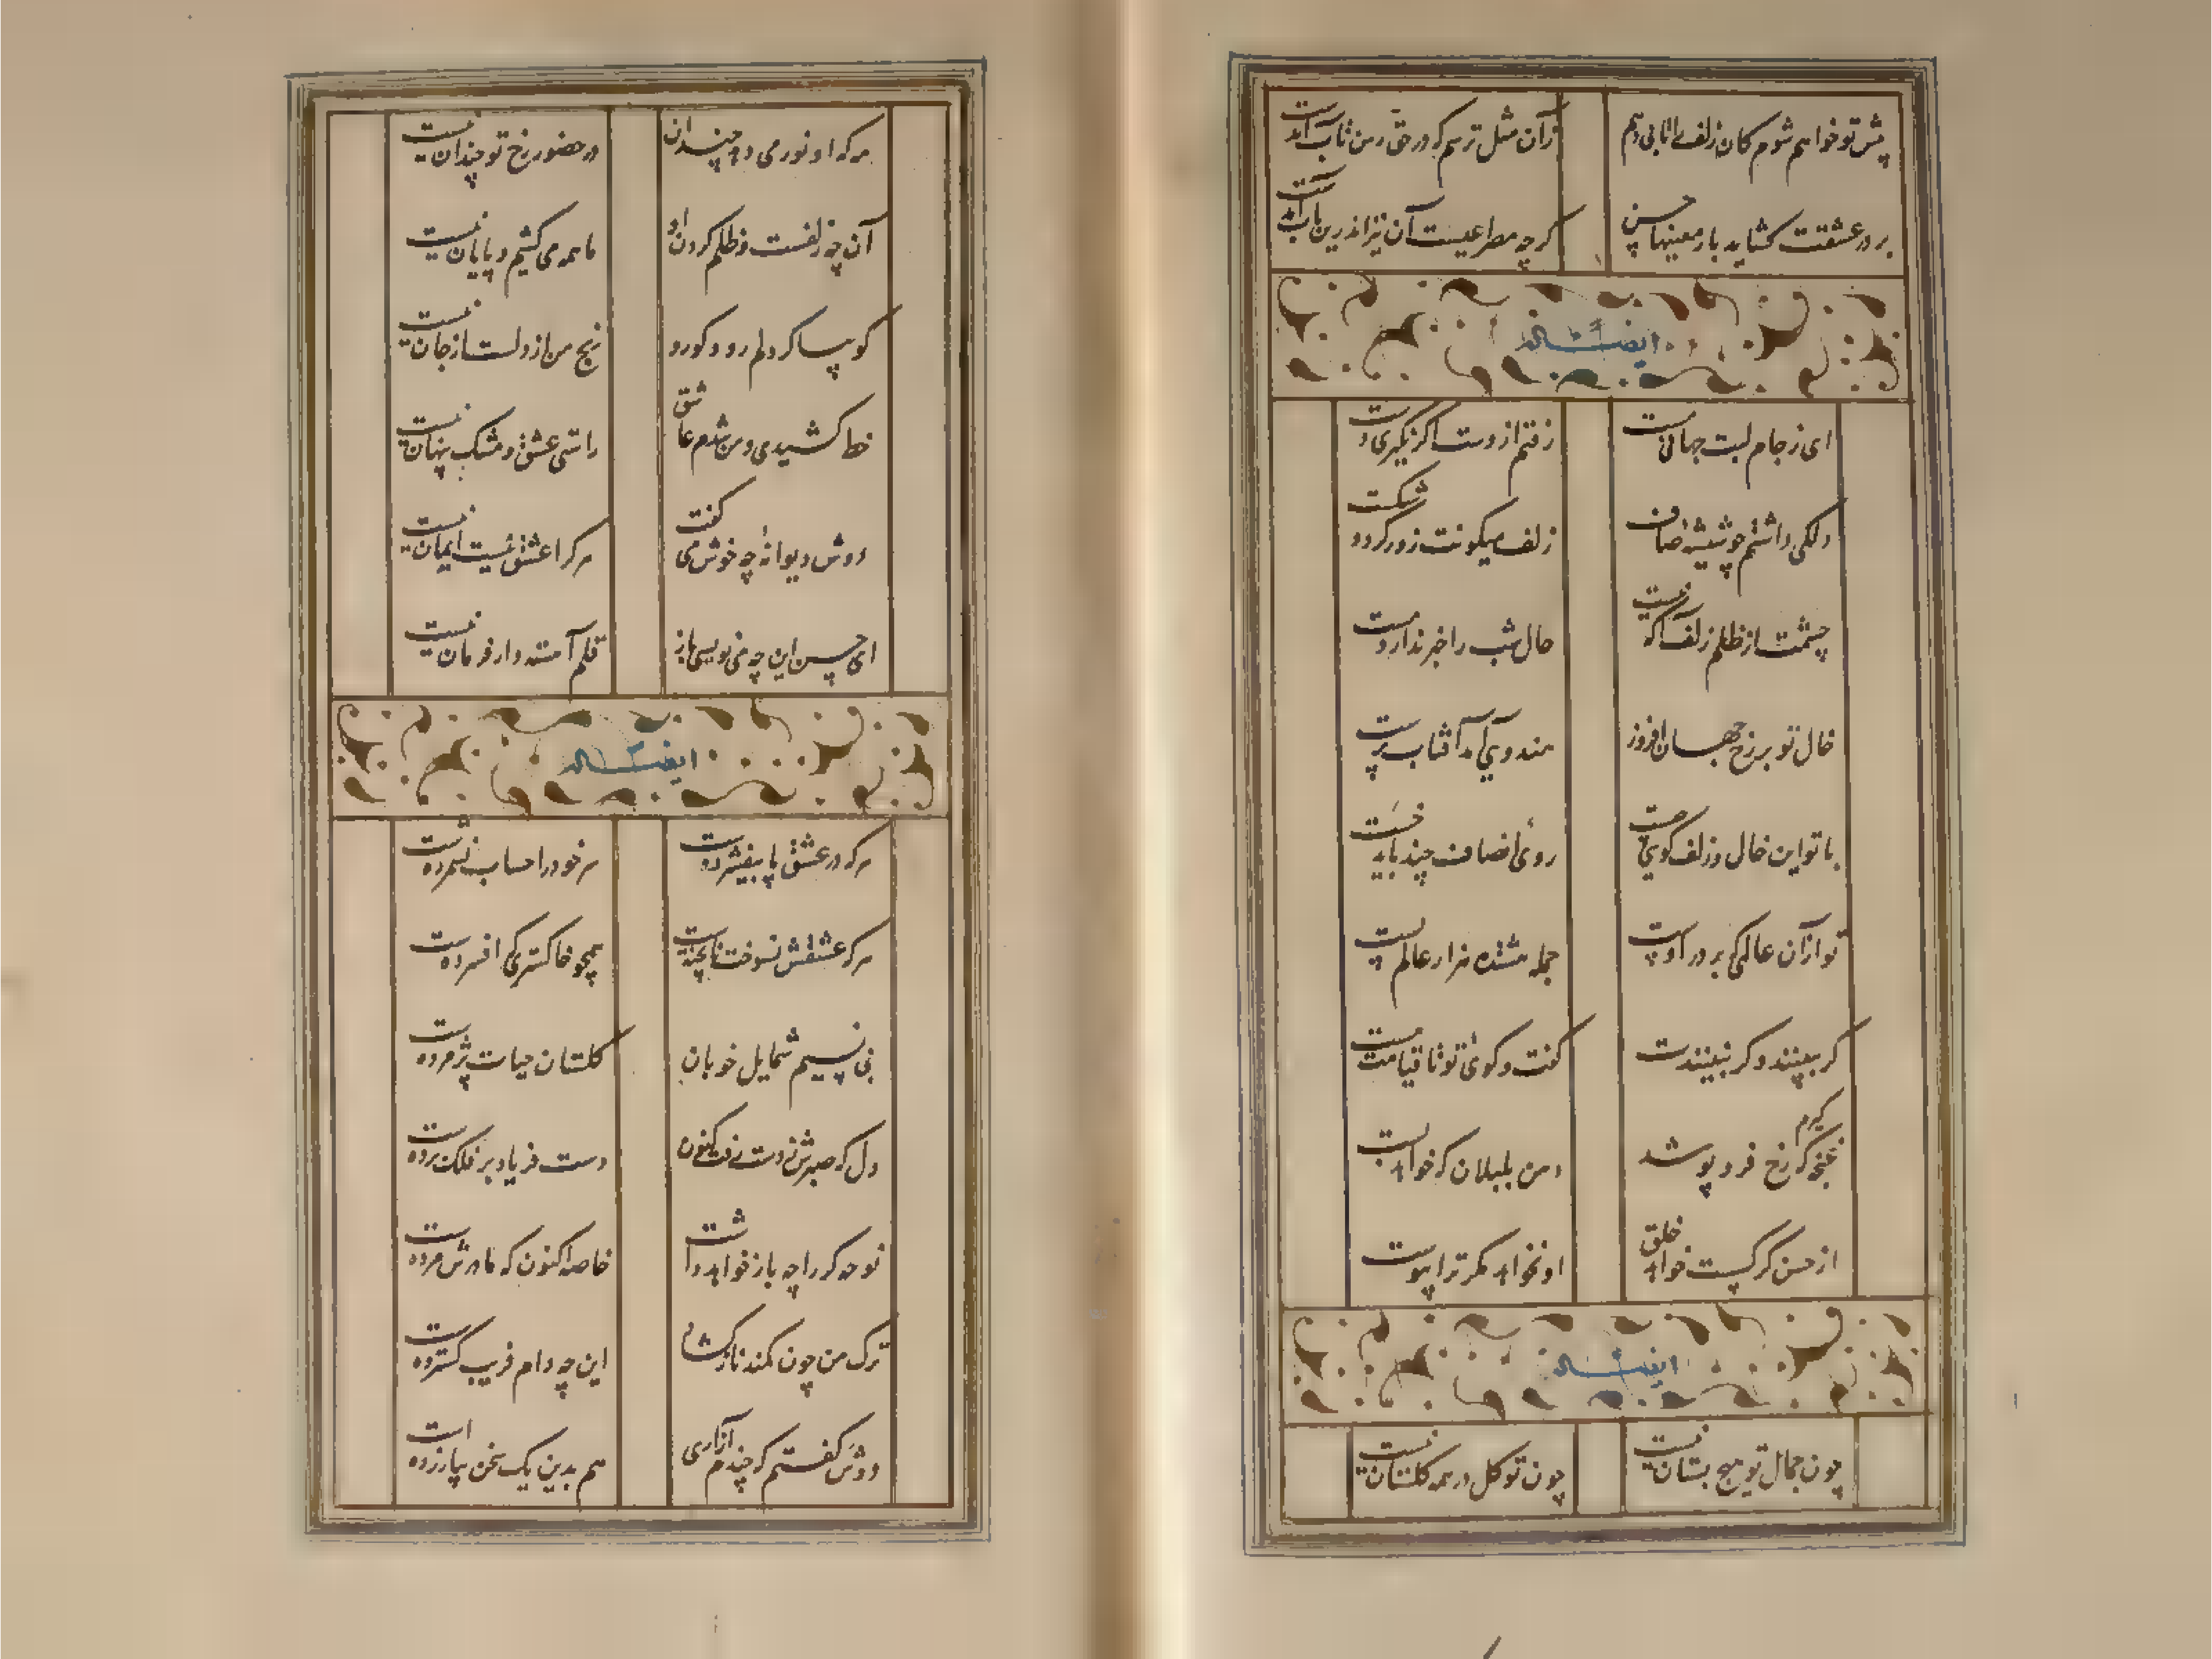 پیش تو خواهم شوم کان زلف را تابی دهم زان مثل ترسم که در حق من ناب آمدست
بر در عشقت گشاید بار معنیها حسن گرچه مطراعیست آن نیز اندرین باب آمدست
ایضاً له
ای ز جام لبت جهانی مست رفتم از دست اگر نگیری دست
دلکی داشتم چو شیشه صاف زلف میگونت زور کرد و شکست
چشمت از ظلم زلف آگه نیست حال شب را خبر ندارد مست
خال تو بر رخ جهان افروز هندویی آمد آفتاب پرست
با تو این خال و زلف گویی چیست روی انصاف چند باید خست
تو از آن عالمی که بر در اوست جمله مشتده هزار عالم پست
گر ببینند و گر نبینندت گفت و گوی تو تا قیامت هست
غنچه گیرم که رخ فرو پوشد دهن بلبلان که خواهد بست
از حسن گر گسیست خواهد خلق او نخواهد مگر ترا پیوست
ایضاً له
چون جمال تو هیچ بستان نیست چون تو گل در همه گلستان نیست
مرکه او نور می دهد چندان در حضور رخ تو چندان نیست
آن چه زلفست و ظلم کردن او ما همه می کشیم و پایان نیست
گو بیا گر دلم رود گو رو رنج من از دلست از جان نیست
خط کشیدی و من شدم عاشق راستی عشق و مشک پنهان نیست
دوش دیوانهٔ چه خوش می گفت هر کرا عشق نیست ایمان نیست
ای حسن این چه می نویسی باز قلم آهسته دار فرمان نیست
ایضاً له
هر که در عشق پا بیفشردست سر خود را حساب نشمردست
هر که عشقش نسوخت نا پخته است همچو خاکستری که افسردست
بی نسیم شمایل خوبان گلستان حیات پژمردست
دل که صبرش ز دست رفت کنون دست فریاد بر فلک بردست
نوحه گر را چه باز خواهد داشت خاصه اکنون که مادرش مردست
ترک من چون کمند ناز گشاد این چه دام فریب گستردست
دوش گفتم که چندم آزاری هم بدین یک سخن بیازردست